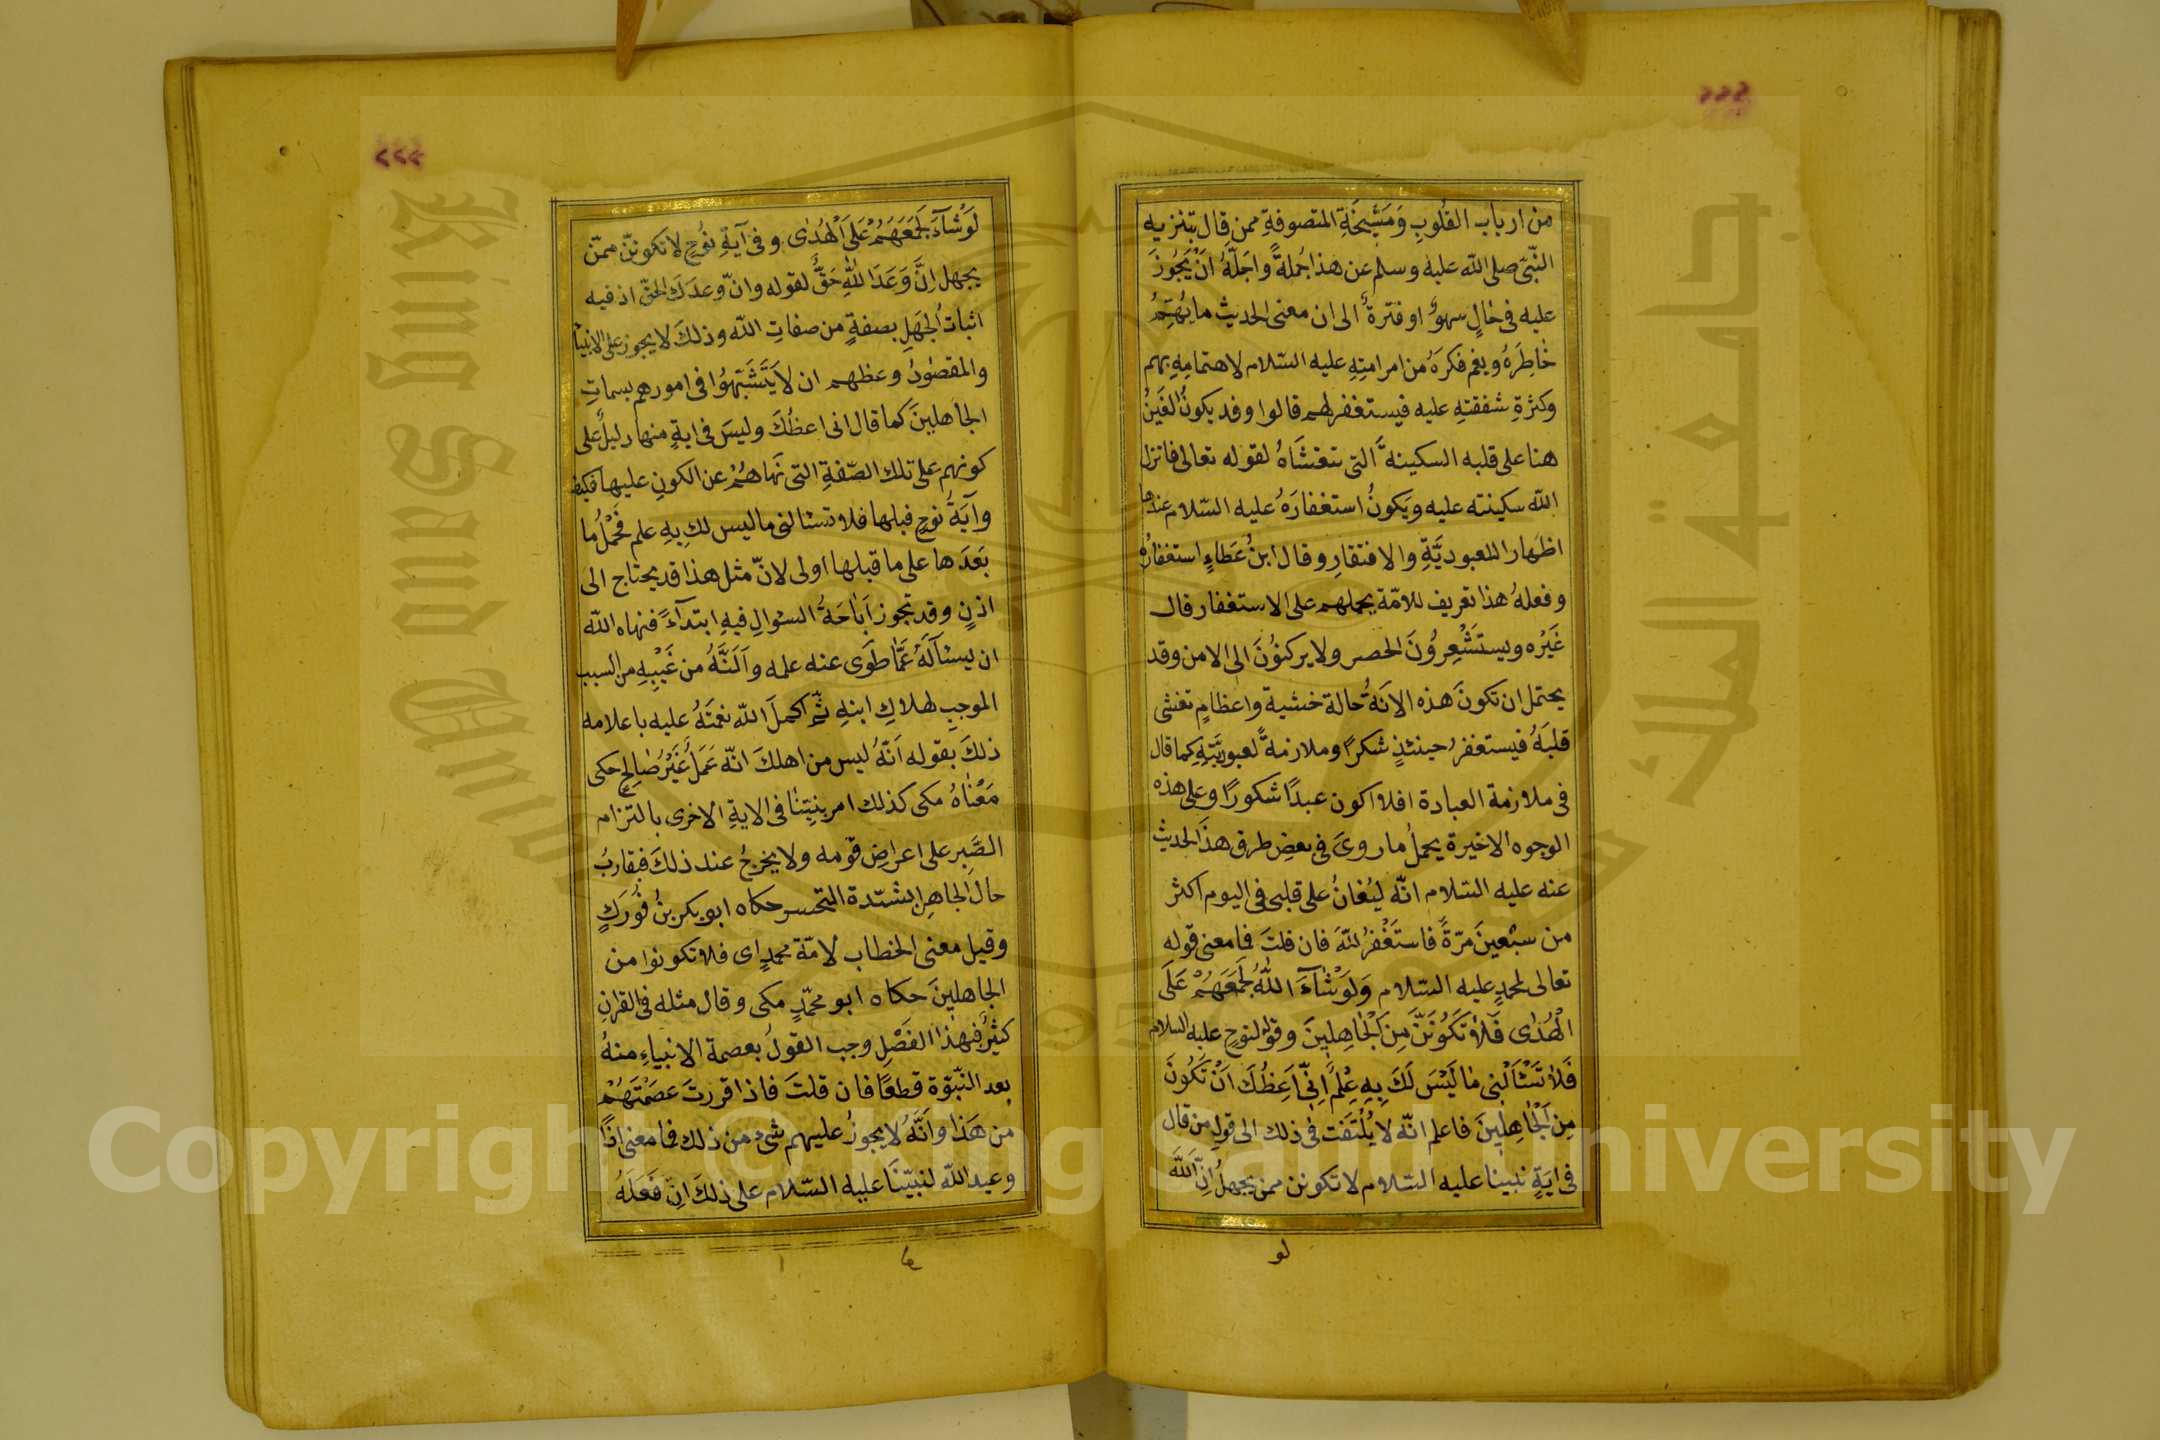 من ارباب القُلوبِ وَمَشِيخَةِ المتصوفةِ ممن قال بتنزيه
النّبىّ صلى الله عليه وسلم عن هذا جُملةً واَجَلَّهُ اَنْ يَجُوزَ
عليه فى حَالٍ سهوٌ او فترةٌ الى ان معنى الحديث ما يُهِمُّ
خَاطِرَهُ ويغم فكرَهُ من امر امتِهِ عليه السّلام لاهتمامِهِ بهم
وكثرةِ شفقتهِ عليه فيستغفر لهم قالوا وقد يكونُ الغَينُ
هنا على قلبه السكينةَ التى تتغشَاهُ لقوله تعالى فانزل
الله سكينته عليه ويَكونُ استغفارَهُ عليه السّلام عندها
اظهارا للعبوديَّةِ والافتقارِ وقال ابنُ عَطاءٍ استغفارُهُ
وفعلهُ هذا تعريف للامّة يحملهم على الاستغفار قال
غَيْرُه ويستَشْعِرُونَ الحصر ولا يركنُونَ الى الامن وقد
يحتمل ان تكونَ هذه الانَةُ حالة خشية واعظامٍ تغشى
قلبَهُ فيستغفرُ حينئذٍ شكرًا وملازمةً لعبوديّتِهِ كما قال
فى ملازمة العبادة افلا اكون عبدًا شكورًا وعلى هذه
الوجوه الاخيرة يحملُ ما روىَ فى بعضِ طرق هذَا الحديث
عنه عليه السّلام انّه ليُغانُ على قلبى فى اليوم اكثر
من سبْعينَ مرّةً فاستَغْفرُ اللهَ فان قلتَ فما معنى قوله
تعالى لمحمدٍ عليه السّلام وَلَوْشَآءَ اللهُ لَجَمَعَهُمْ عَلَى
الْهُدٰى فَلَا تَكُونَنَّ مِنَ الْجَاهِلِينَ وقولِه لنوحٍ عليه السلام
فَلَا تَسْئَلْنِى مَا لَيْسَ لَكَ بِهِ عِلْمٌ اِنِّى اَعِظُكَ اَنْ تَكُونَ
مِنَ الْجَاهِلِينَ فاعلم انّه لا يُلْتَفَت فى ذلك الى قولِ من قال
فى ايَةٍ نبينا عليه السّلام لا تكونن ممن يجهلُ اِنَّ اللهَ
لو
لَوْشَآءَ لَجَمَعَهُمْ عَلَى الْهُدٰى وفى آيَةِ نُوحٍ لا تكوننّ ممّن
يجهل اِنَّ وَعَدَ اللهِ حَقٌّ لقوله وانّ وعدَكَ الحقّ اذ فيه
اثباتُ الجَهلِ بصفةٍ من صفاتِ الله وذلكَ لا يجوز على الانبيآ
والمقصُودُ وعظهم ان لا يَتَشَبّهُوا فى امورهم بسماتِ
الجاَهلِينَ كما قال انى اعظُكَ وليسَ فى ايةٍ منها دليلٌ على
كونهم على تلك الصّفةِ التى نَهاهُمْ عن الكونِ عليها فكيف
وآيَةُ نوحٍ قبلها فلا تسئالنى ما ليس لك بِهِ علم فحَمْلُ ما
بَعَدَها على ما قبلها اولى لانّ مثل هذا قد يحتاج الى
اذنٍ وقد تجوز اَبَاحَةُ السؤالِ فيهِ ابتدآءً فنهاه الله
ان يسئآلَهُ عَمَّا طوَى عنه علمه وآكنَّهُ من غَيْبِهِ من السبب
الموجب لهلاكِ ابنهِ ثمّ اكملَ الله نعمَتَهُ عليه باعلامه
ذلكَ بقوله اَنّهُ ليس من اهلكَ انّه عَمَلٌ غَيْرُ صَالِحٍ حكى
مَعْنَاهُ مكى كذلك امر نبيّنَا فى الايةِ الاخرى بالتزام
الصَّبرِ على اعراضِ قومه ولا يخرجُ عند ذلكَ فيقاربُ
حالَ الجاهِلِ بشّدة التحسر حكاه ابو بكر بنُ فُورَكٍ
وقيل معنى الخطاب لامّة محمدٍ اى فلا تكونوا من
الجاهلينَ حكاه ابو محمّدٍ مكى وقال مثله فى القرانِ
كثيرٌ فبهٰذا الفَضْلِ وجب القولُ بعصمة الانبياءِ منهُ
بعد النّبوّة قطعًا فان قلتَ فاذا قررتَ عصمْتَهُمْ
من هَذَا وَاَنَّهُ لا يجوزُ عليهم شىءٌ من ذلك فما معنى اذًا
وعيد اللهِ لنبيّنَا عليه السّلام على ذلكَ اِنْ فَعَلَهُ
Copyright © King Saud University
King Saud University
جامعة الملك سعود
1957